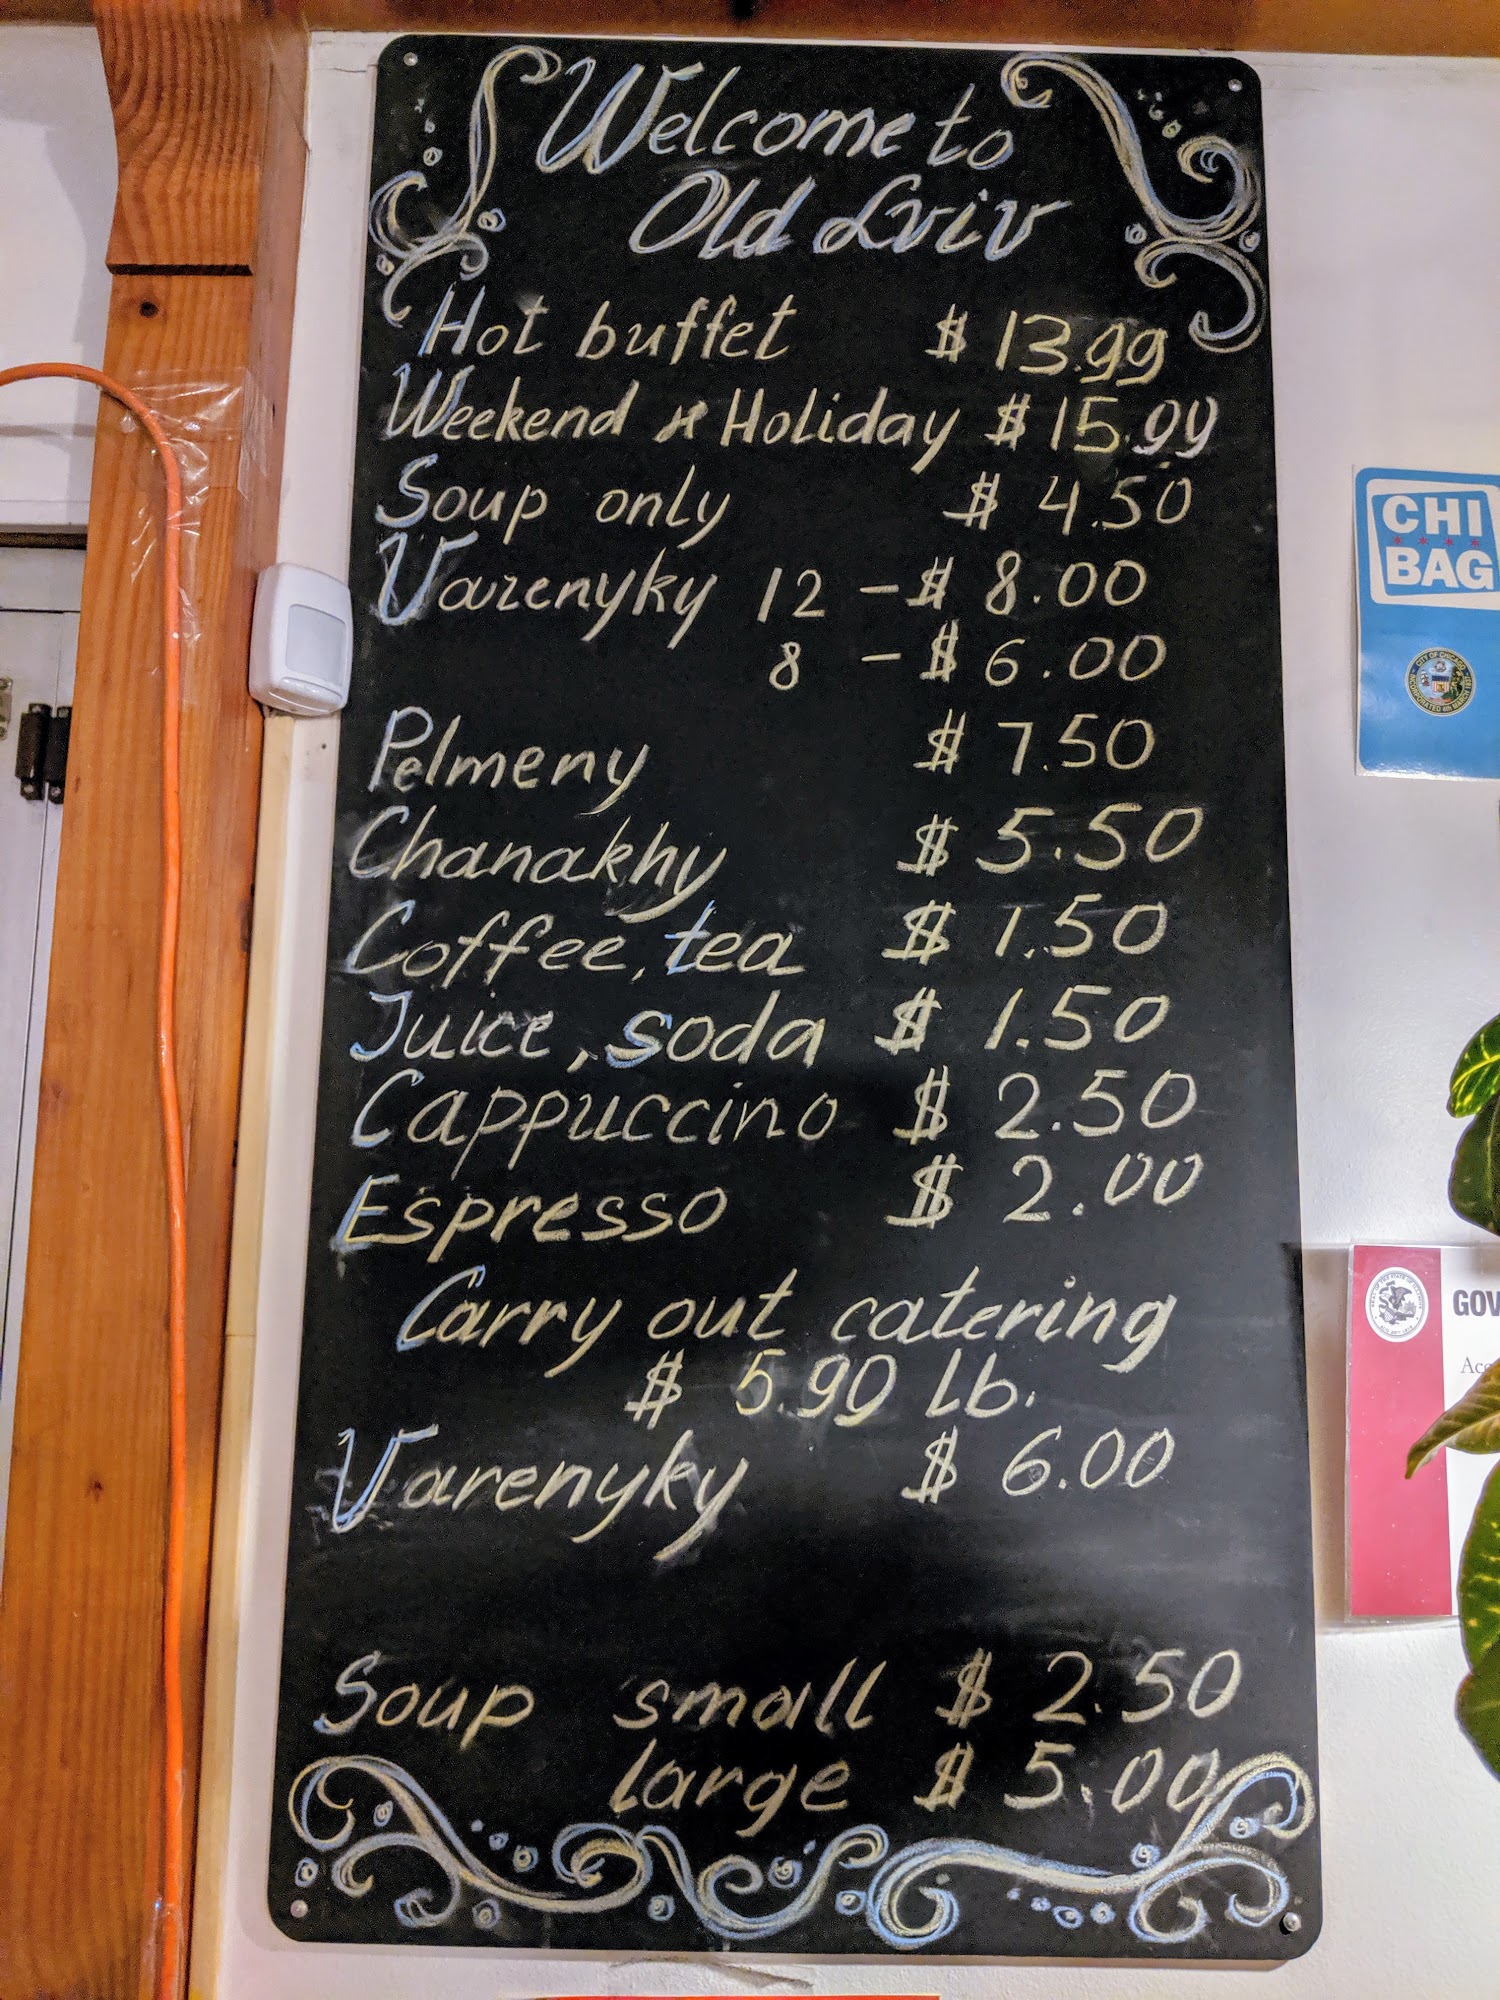 Welcome to
Old Lviv
Hot buffet $ 13.99
Weekend & Holiday $ 15.99
Soup only $ 4.50
Varenyky 12 – $ 8.00
8 – $ 6.00
Pelmeny $ 7.50
Chanakhy $ 5.50
Coffee, tea $ 1.50
Juice, soda $ 1.50
Cappuccino $ 2.50
Espresso $ 2.00
Carry out catering
$ 5.99 lb.
Varenyky $ 6.00
Soup small $ 2.50
large $ 5.00
CHI
BAG
CITY OF CHICAGO
GOV
Acc